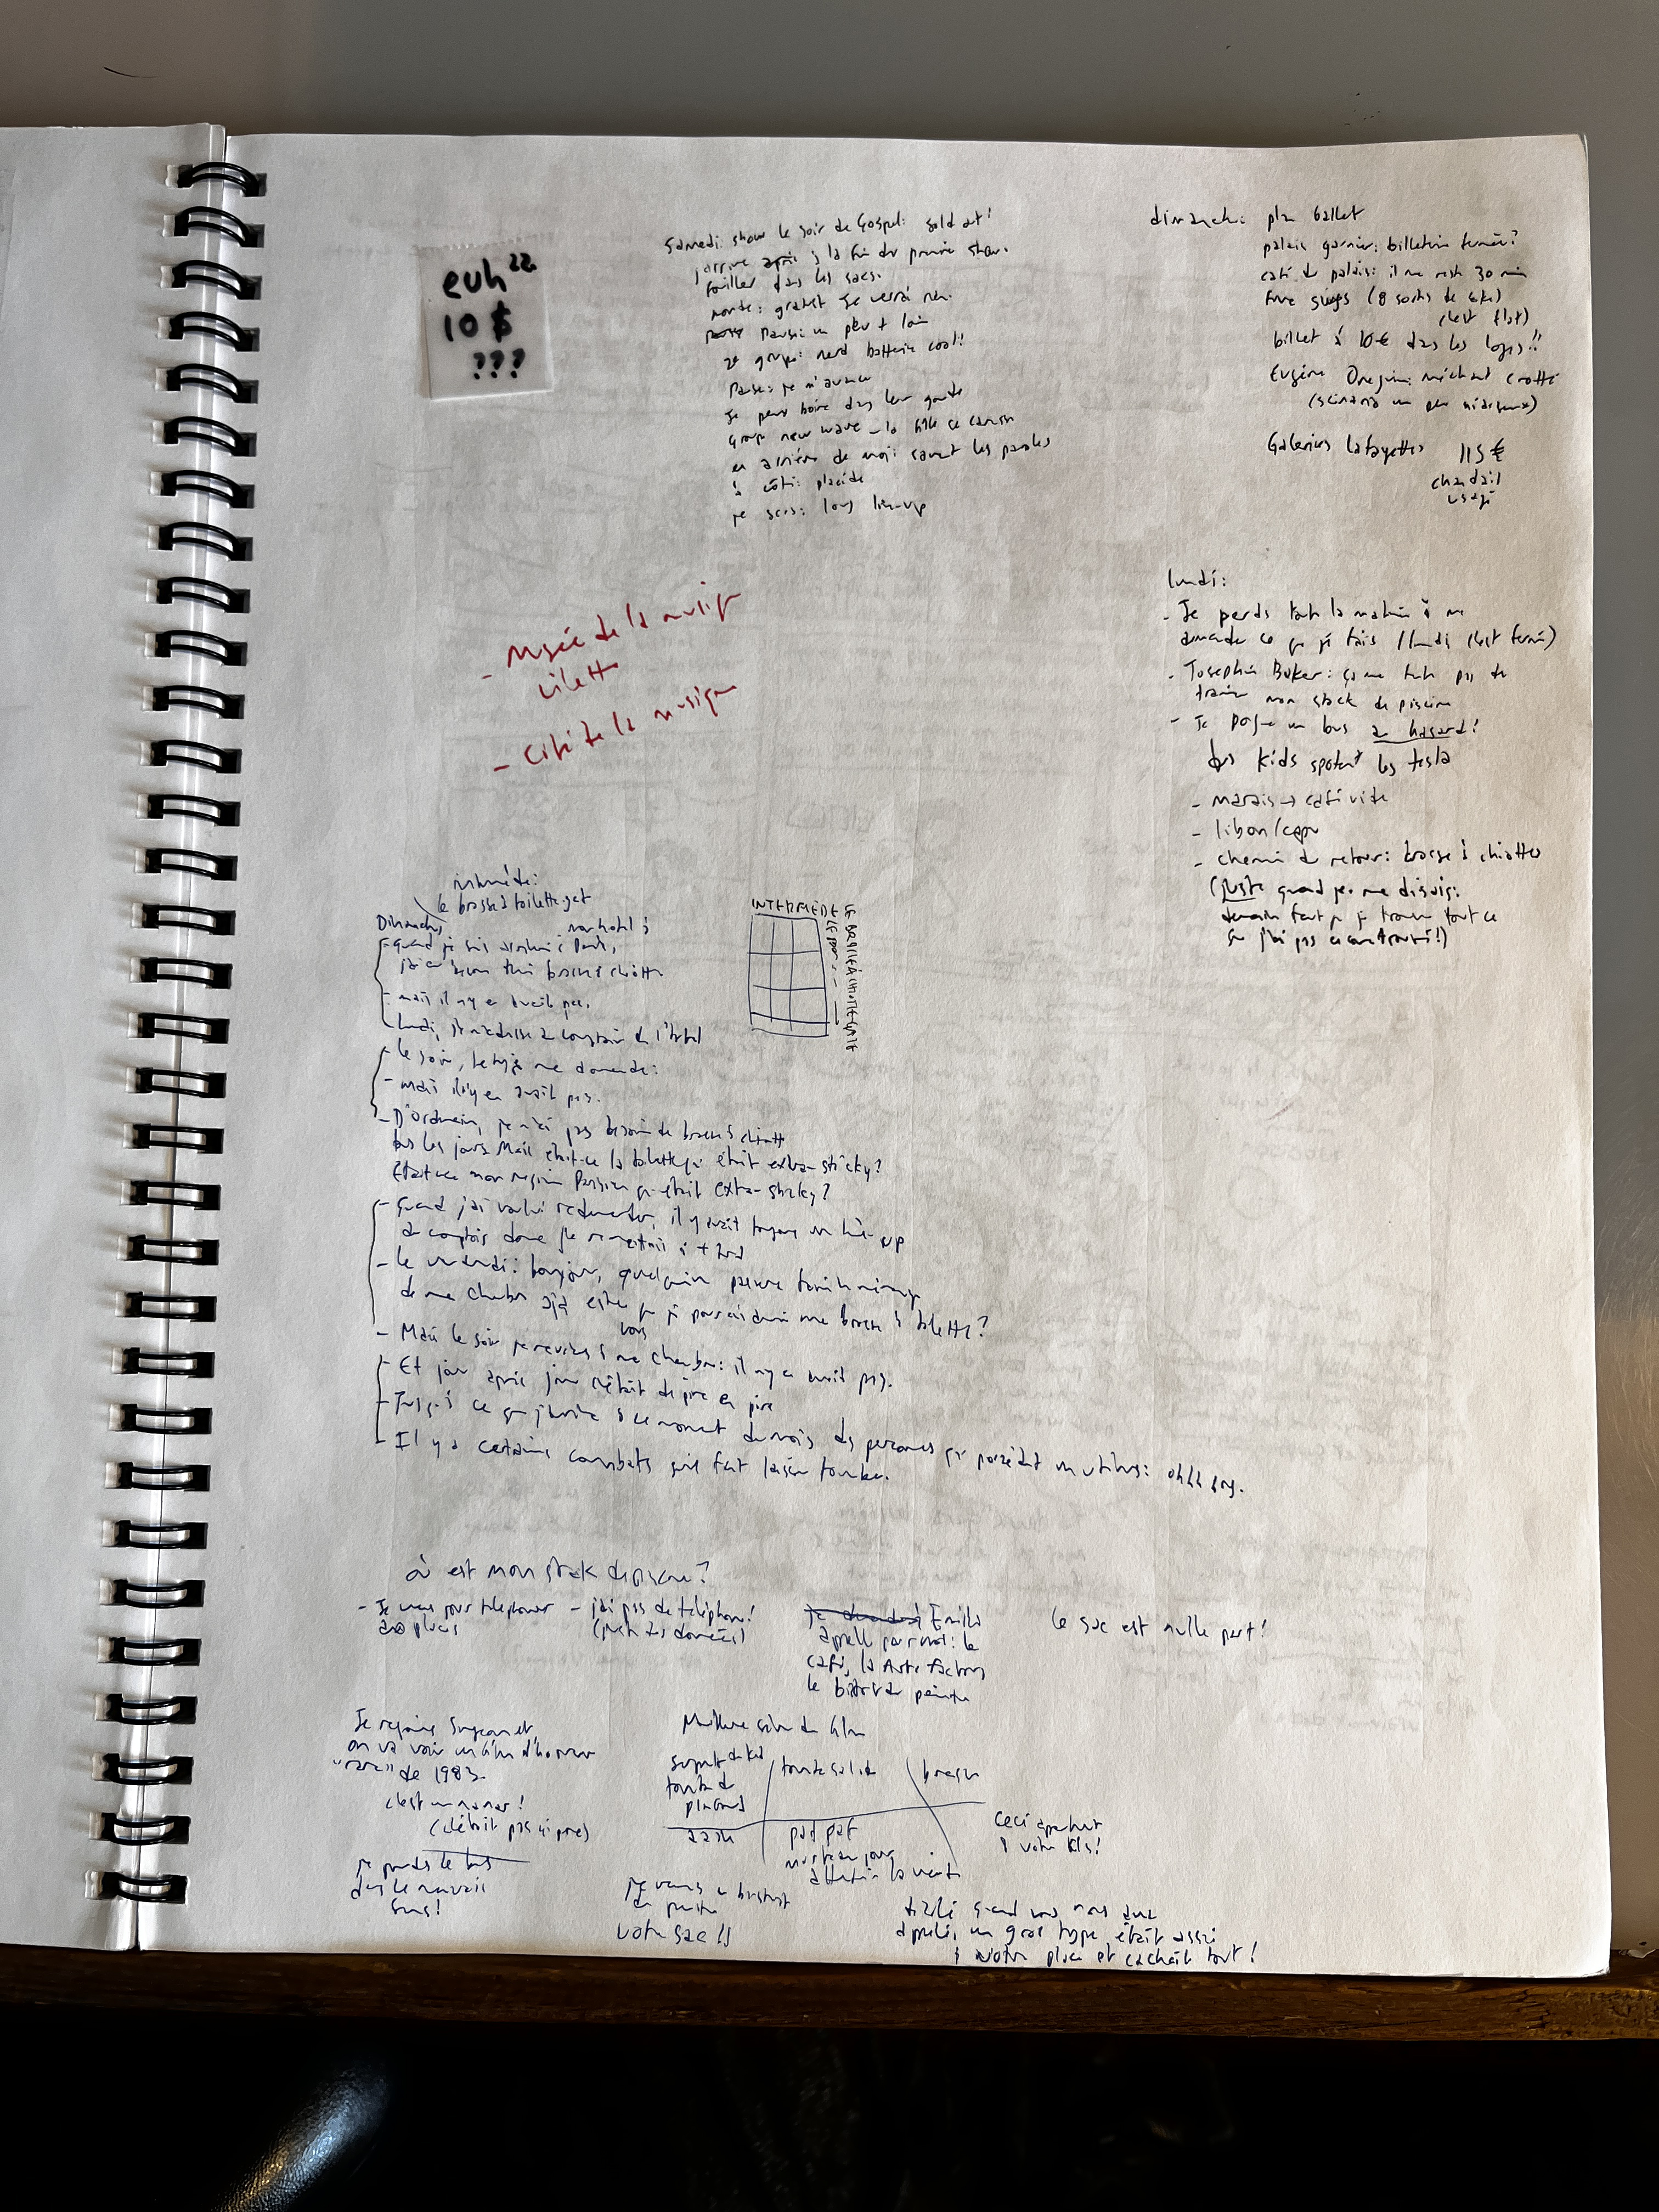 euh
10 $
???
Samedi: show le soir de Gospel: sold out!
j'arrive après à la fin du premier show.
fouiller dans les sacs.
monte: gratuit Je verrai rien.
Pause: un peu + loin
2e groupe: nerd batterie cool!
Pause: je m'avance
Je peux boire dans leur gourde
Group new wave la fille se
en arrière de moi: savent les paroles
à côté: placide
je sors: long line-up
dimanche: plan ballet
palais garnier: billetterie fermée?
café du palais: il me reste 30 min
(8 sortes de)
(c'est flat)
billet à 10€ dans les loges!!
Eugène Onegin: méchant crotté
(scénario un peu)
Galeries Lafayettes 115 €
chandail
usagé
- Musée de la musique
Vilette
- Cité de la musique
lundi:
- Je perds toute la matinée à me
demander ce que je fais (lundi c'est fermé)
- Josephine Baker: ça me tente pas de
trainer mon stock de piscine
- Je pogne un bus au hasard!
des kids spotent les tesla
- marais → café vite
- libon/
- chemin du retour: brosse à chiottes
(juste quand je me disais:
demain faut que je trouve tout ce
que j'ai pas encore trouvé!)
le brosse à toilette-gate
Dimanche, mon hotel à
- quand je suis arrivé à Paris,
j'ai eu besoin d'une brosse à chiotte
- mais il n'y en avait pas.
- lundi, je m'adresse au comptoir de l'hotel
INTERMÈDE
LE BROSSE À CHIOTTE-GATE
- le soir, le type me demande:
- mais il n'y en avait pas.
- D'ordinaire, je n'ai pas besoin de brosse à chiotte
tous les jours. Mais était-ce la toilette qui était extra-sticky?
Était-ce mon régime Parisien qui était extra-sticky?
- Quand j'ai voulu redemander, il y avait toujours un line-up
au comptoir donc je remettais à + tard
- le vendredi: bonjour, quelqu'un passera faire le ménage
de ma chambre est-ce que je pourrais avoir une brosse à toilette?
- Mais le soir je reviens à ma chambre: il n'y en avait pas.
- Et jour après jour c'était de pire en pire
- Jusqu'à ce que j'arrive à ce moment du mois des personnes qui possèdent un utérus: ohhh boy.
- Il y a certains combats qu'il faut laisser tomber.
où est mon stock de piscine?
- Je veux pour téléphoner
aux places
- j'ai pas de téléphone!
(juste des données)
Émilie
appelle pour moi: le
café, la Arts Factory
le bistrot du peintre
Le sac est nulle part!
Je rejoins
on va voir un film d'horreur
"rare" de 1983
c'est un nanar!
(c'était pas si pire)
je prends le bus
dans le mauvais
sens!
Meilleure scène du film
tombe du
plafond
tombe
paf paf
Ceci appartient
à votre fils!
je vais au bistrot
du peintre
votre sac!!
désolé quand vous nous avez
appelé, un gros type était assis
à votre place et cachait tout!